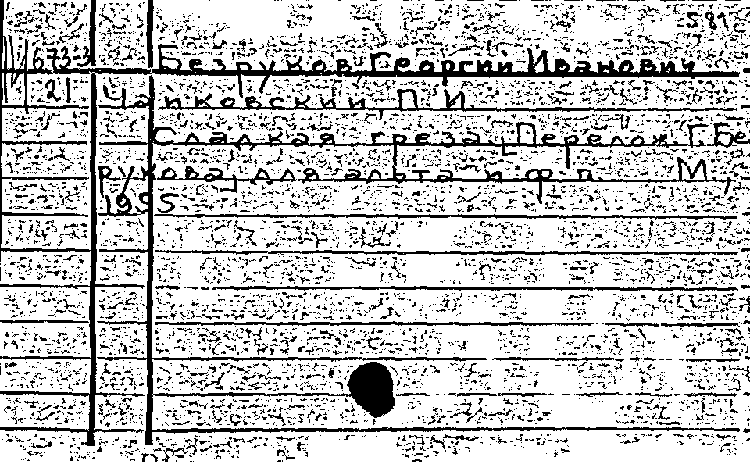 581
673-3 Безруков Георгий Иванович
21 Чайковский, П. И.
Сладкая греза. [Перелож. Г. Бе
рукова] для альта и ф-п. М.,
1955